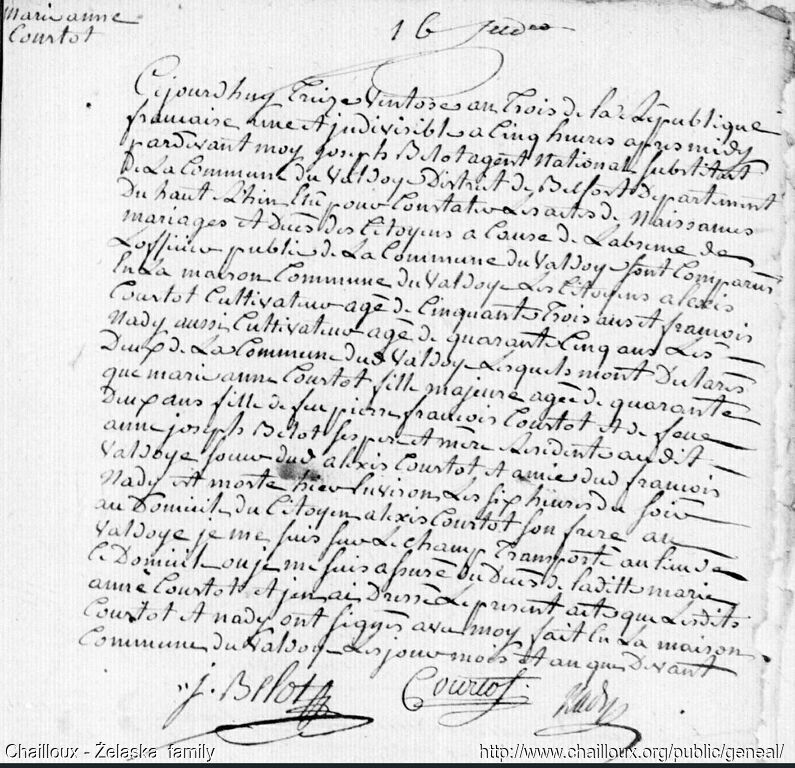 Marie anne
Courtot
16
Cejourdhuy Treize Ventose an Trois de la République
francaise une et jndivisible a Cinq heures apres midy
pardevant moy joseph Belot agent National substitut
de La Commune du Valdoye District de Belfort Departement
Du haut Rhin Elu pour Constater Les actes de Naissances
mariages et Duès des Citoyens a Cause de Labsence de
Lofficier public de La Commune du Valdoye sont Comparus
En La maison Commune du Valdoye Les Citoyens alexis
Courtot Cultivateur agé de Cinquante Trois ans et francois
Nady aussi Cultivateur agé de quarante Cinq ans Les
Deux de La Commune dud Valdoye Lesquels mont Declarés
que marie anne Courtot fille majeure agée de quarante
Deux ans fille de feu pierre francois Courtot et de feue
anne joseph Belot ses pere et mère Residente audit
Valdoye soeur dud alexis Courtot et amie dud francois
Nady Et morte hier Environ Les six heures du soir
au Domicile du Citoyen alexis Courtot son frere au
Valdoye je me suis sur Le champ Transporté au lieu de
Ce Domicile ou je me suis assuré du Duès de laditte marie
anne Courtot et jen ai Dressé Le present acte que Lesdits
Courtot et nady ont signés avec moy fait En La maison
Commune du Valdoye Les jour mois et an que Devant
J. Belot Courtot Nady
Chailloux - Żelaska family
http://www.chailloux.org/public/geneal/